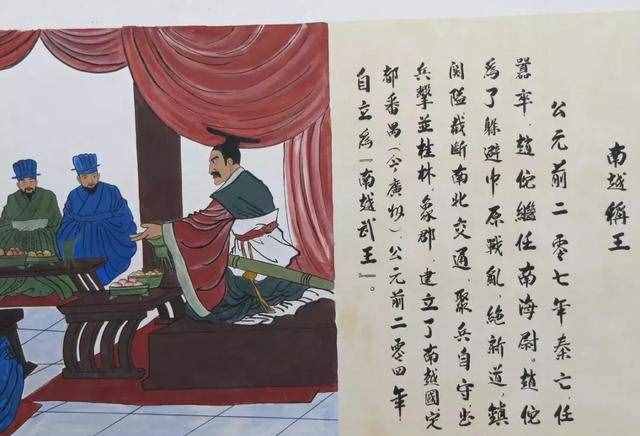 南越稱王
公元前二零七年秦亡,任
嚣卒,趙佗繼任南海尉。趙佗
為了躲避中原戰亂,絕新道,鎮
関隘截断南北交通,聚兵自守出
兵擊並桂林象郡,建立了南越國定
都番禺(今廣州),公元前二零四年
自立為『南越武王』。